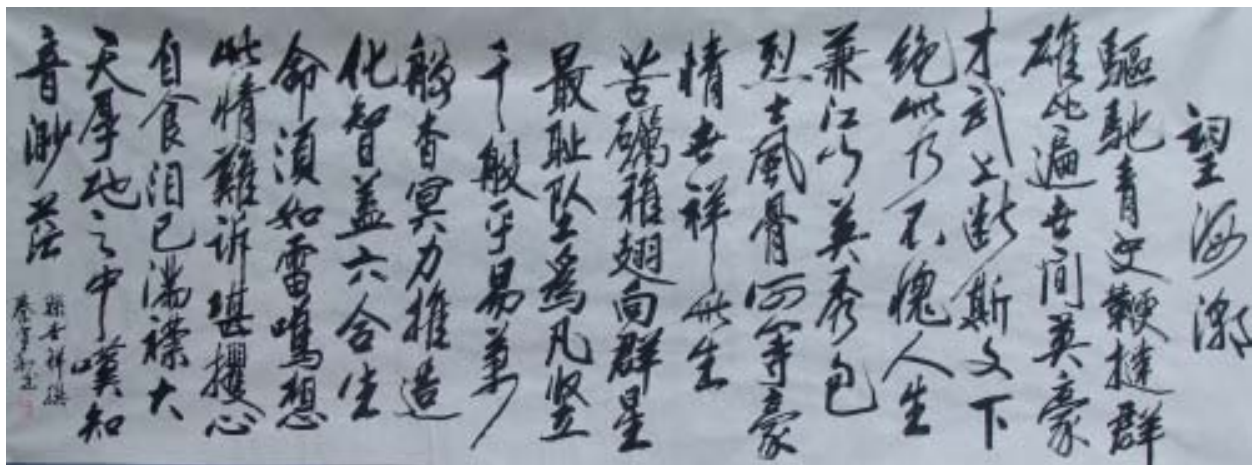 望海潮
驅馳青史鞭撻群
雄比遍世間英豪
才武上斷斯文下
絶此乃不愧人生
兼江山英秀包
烈士風骨何等豪
情世祥此生
苦礪稚翅向群星
最耻墜爲凡竖
千般平易万
般杳冥力推造
化智蓋六合生
命須如雷鳴想
此情難訴堪攫心
自食泪已滿襟大
天厚地之中嘆知
音渺茫
孫世祥撰